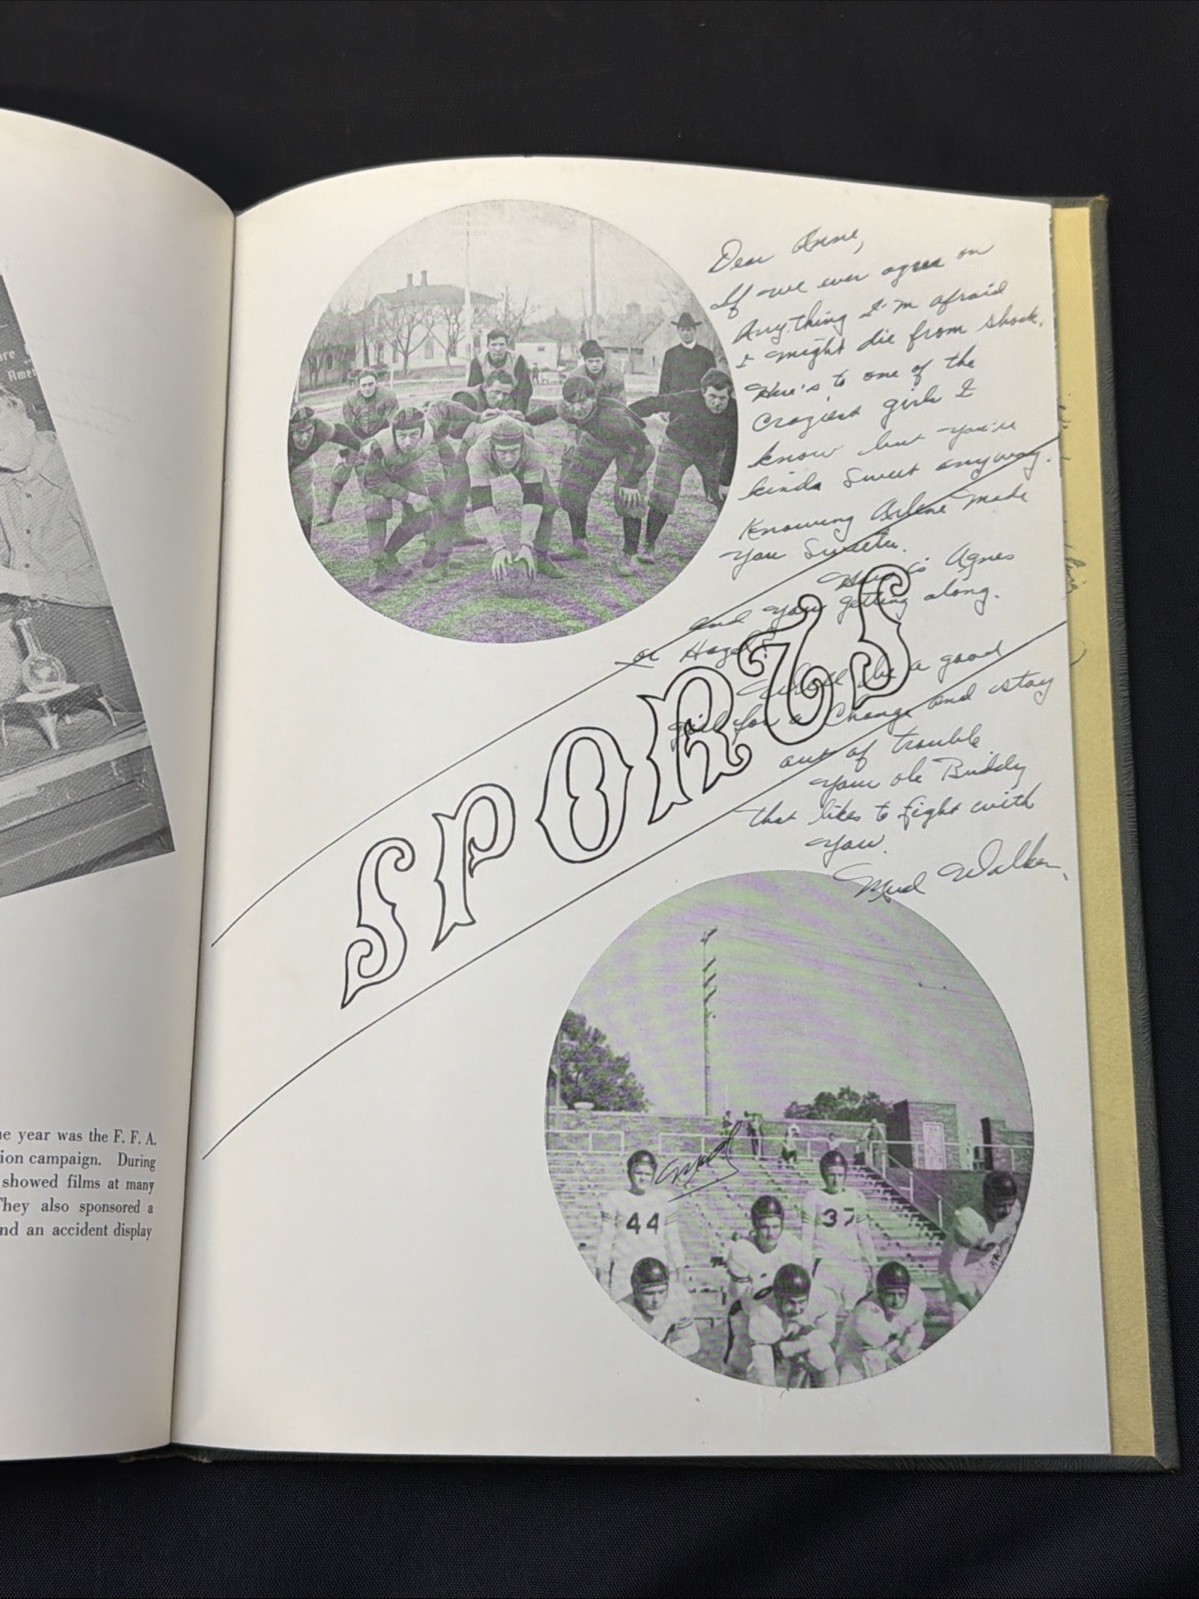 re
Amer
ne year was the F. F. A.
ion campaign. During
showed films at many
They also sponsored a
nd an accident display
Dear Anne,
If we ever agree on
Anything I'm afraid
I might die from shock.
Here's to one of the
Craziest girls I
know but you're
kinda Sweet anyway.
Knowing Arlene made
you Sweeter.
Here's to Agnes
and you getting along.
or Hazel?
be a good
girl for a Change and stay
out of trouble
your ole Buddy
that likes to fight with
you.
Mud Walker.
SPORTS
Mud
44
37